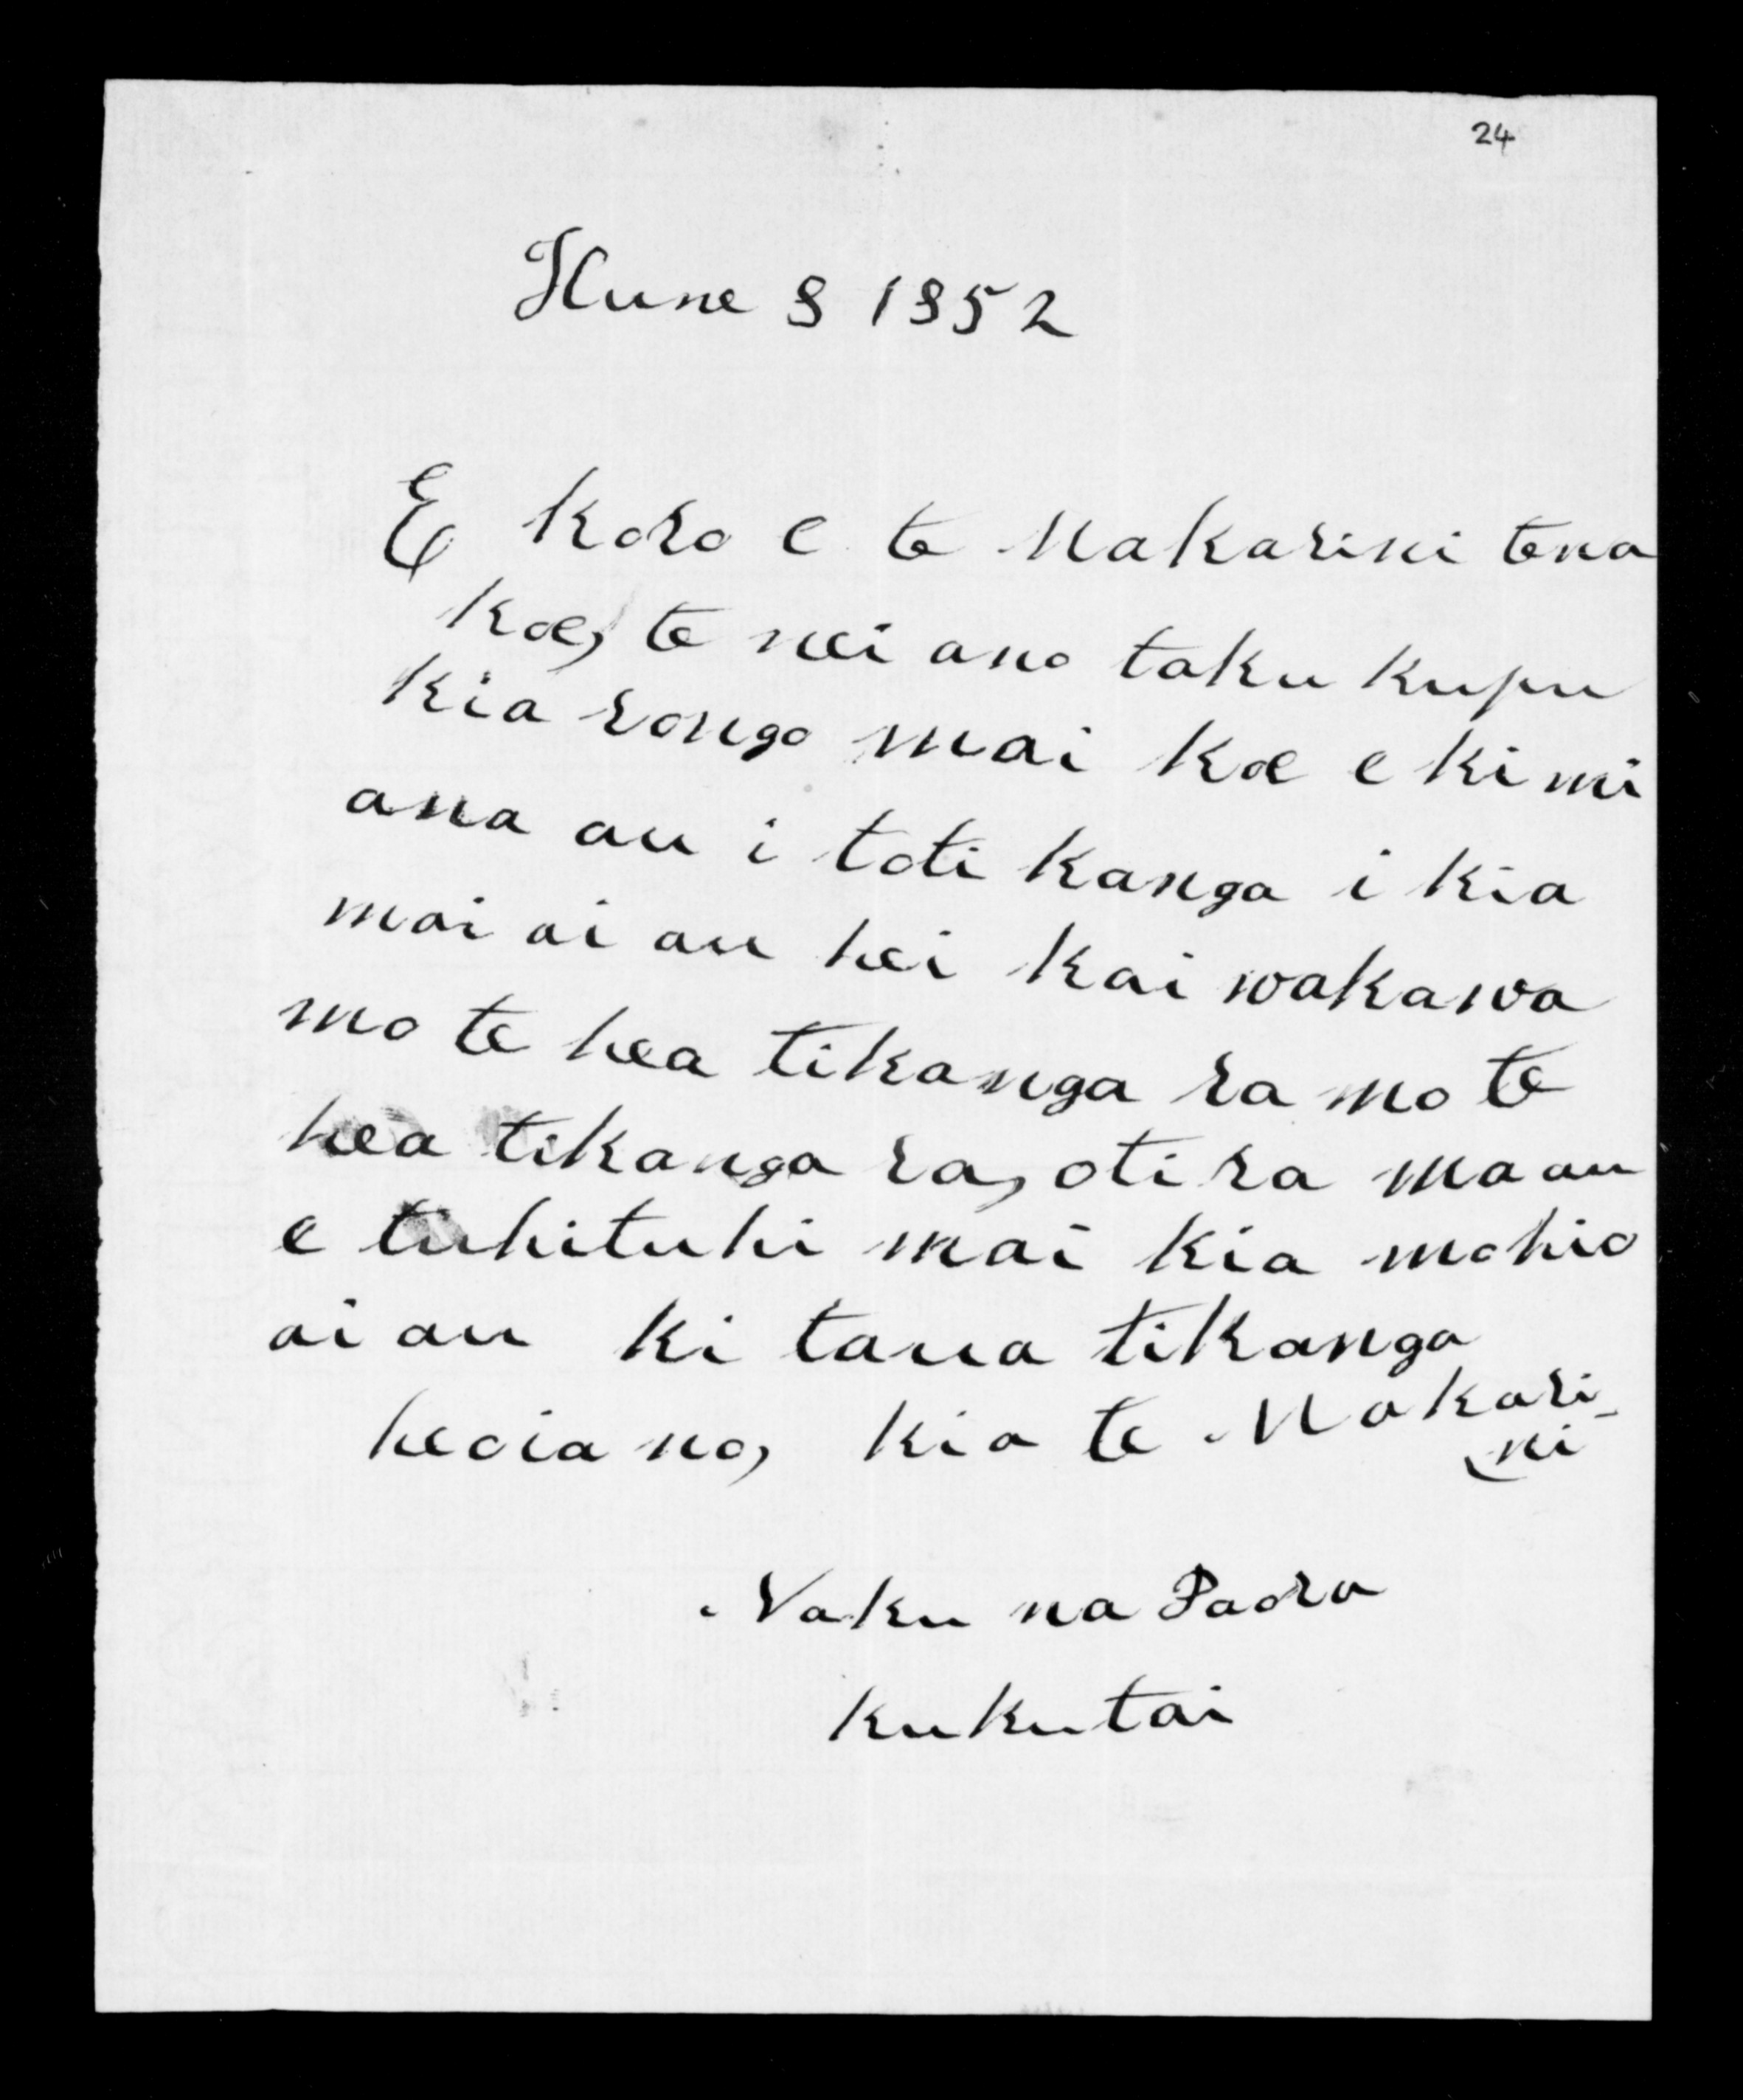 24
Hune 8 1852
E Koro e te Makarini tena
Koe, te nei ano taku kupu
kia rongo mai koe e kimi
ana au i toti kanga i kia
mai ai au hei kai wakawa
mo te hea tikanga ra mo te
hea tikanga ra, oti ra ma au
e tuhituhi mai kia mohio
ai au ki taua tikanga
heoia no, kia te Makari-
ni
Naku na Paora
Kukutai